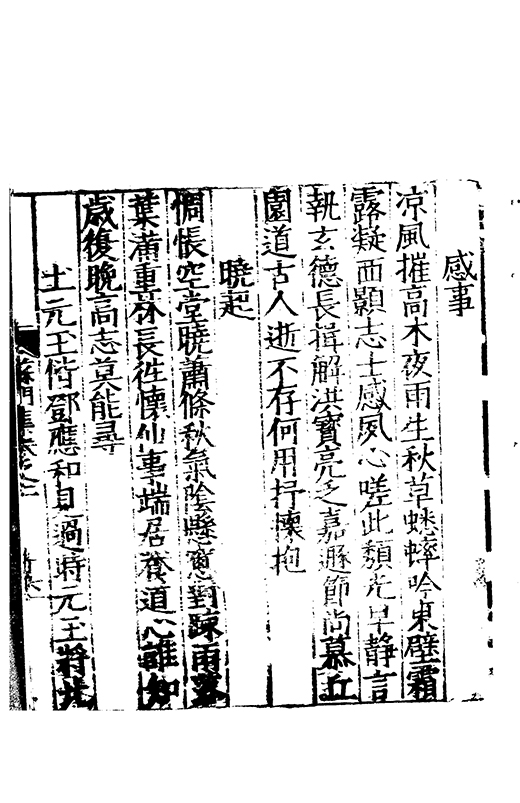 感事
凉風摧高木夜雨生秋草蟋蟀吟東壁霜
露凝西顥志士感夙心嗟此頹光早靜言
執玄德長揖解洪寶亮乏嘉遯節尚慕丘
園道古人逝不存何用抒懷抱
曉起
惆悵空堂曉蕭條秋氣陰懸窻對踈雨落
葉滿重林長徃懷仙事端居養道心誰知
歲復晚高志莫能尋
士元王偕鄧應和見過時元王將北
蘇門集卷之二